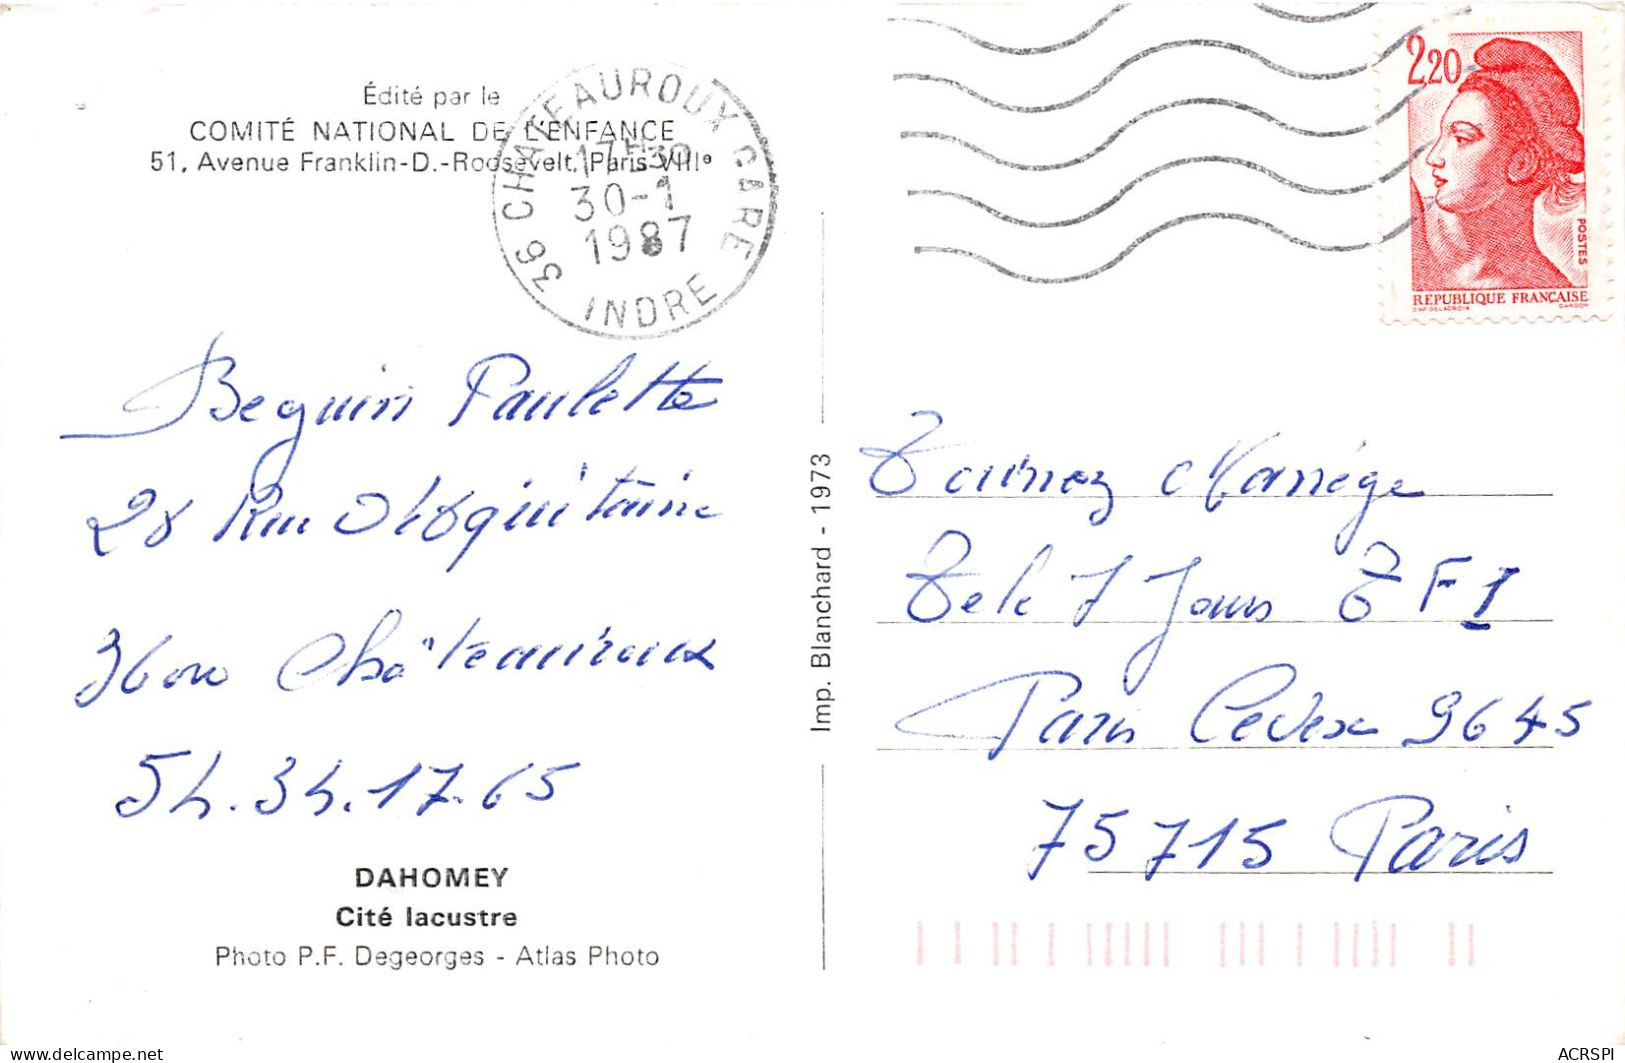 Édité par le
COMITÉ NATIONAL DE L'ENFANCE
51, Avenue Franklin-D.-Roosevelt, Paris VIIIe
36 CHATEAUROUX GARE
17H30
30-1
1987
INDRE
2,20
POSTES
REPUBLIQUE FRANÇAISE
D'AP DELACROIX GANDON
Beguin Paulette
28 Rue D'Aquitaine
36000 Châteauroux
54.34.17.65
DAHOMEY
Cité lacustre
Photo P.F. Degeorges - Atlas Photo
Imp. Blanchard - 1973
Tournez Manège
Tele 7 Jours TF1
Paris Cedex 9645
75715 Paris
delcampe.net
ACRSPI